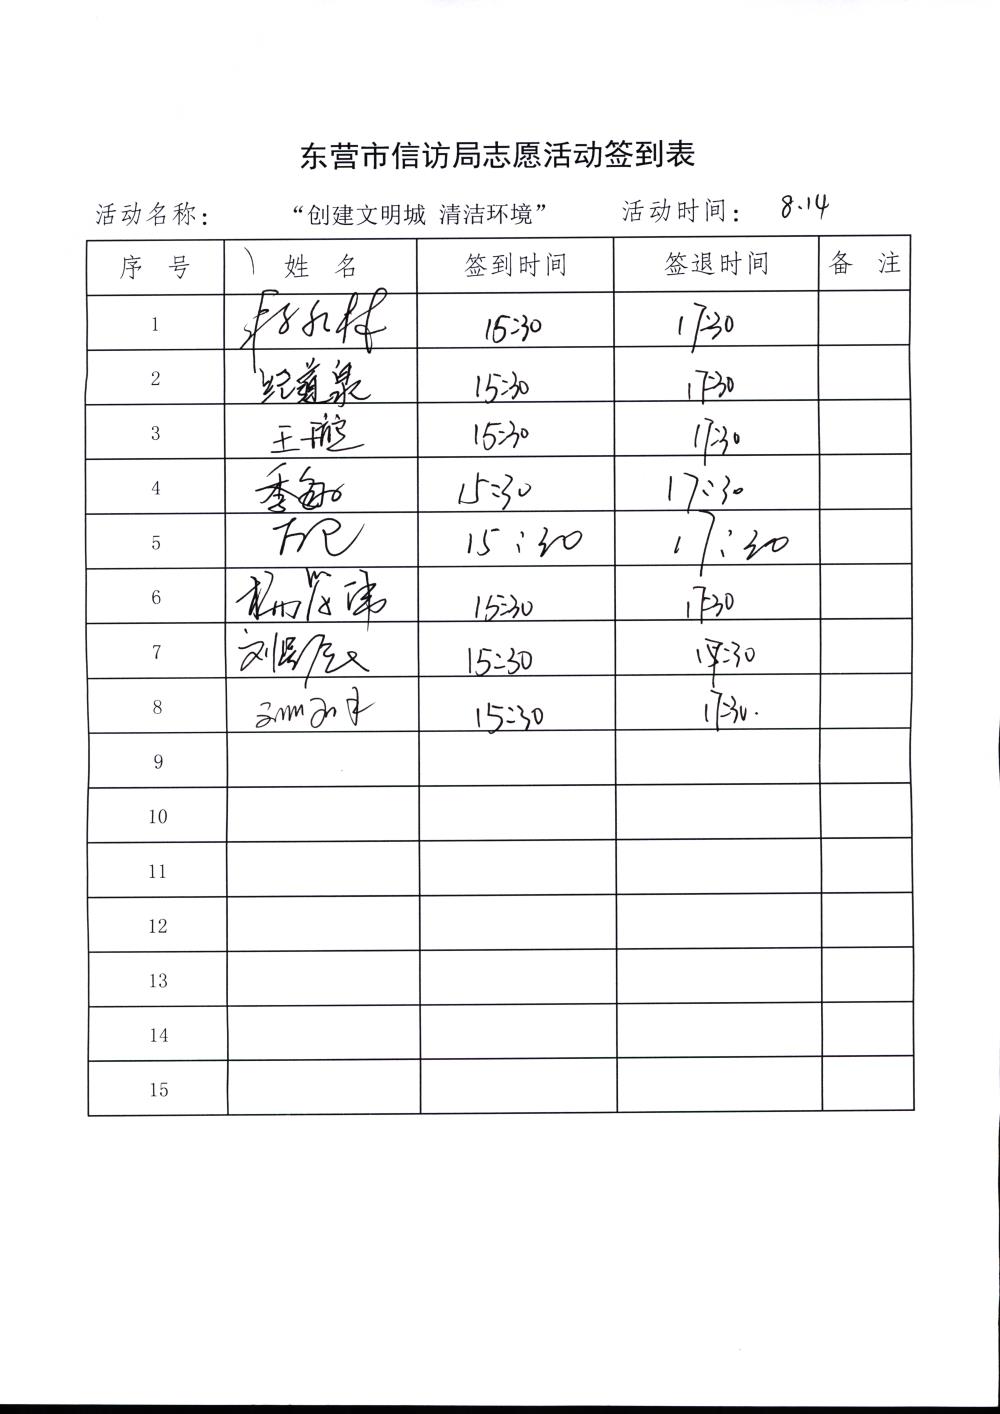 东营市信访局志愿活动签到表
活动名称： “创建文明城 清洁环境” 活动时间： 8.14
序 号 姓 名 签到时间 签退时间 备 注
1 15:30 17:30
2 纪道泉 15:30 17:30
3 王璇 15:30 17:30
4 季敏 15:30 17:30
5 15:30 17:30
6 15:30 17:30
7 15:30 17:30
8 15:30 17:30.
9
10
11
12
13
14
15